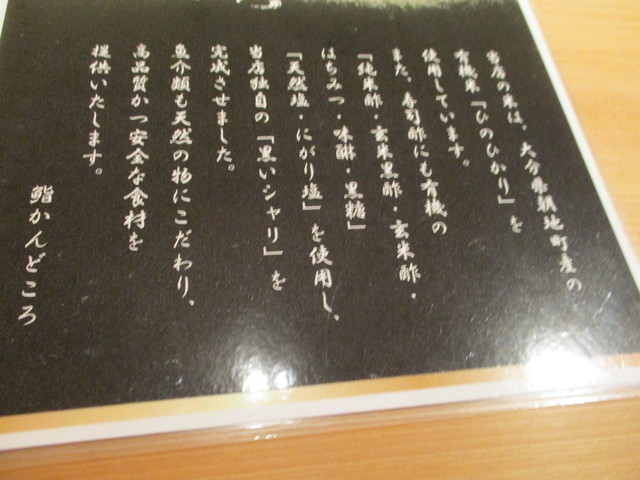 当店の米は、大分県朝地町産の
有機米『ひのひかり』を
使用しています。
また、寿司酢にも有機の
『純米酢・玄米黒酢・玄米酢・
はちみつ・味醂・黒糖』
『天然塩・にがり塩』を使用し、
当店独自の『黒いシャリ』を
完成させました。
魚介類も天然の物にこだわり、
高品質かつ安全な食材を
提供いたします。
鮨かんどころ